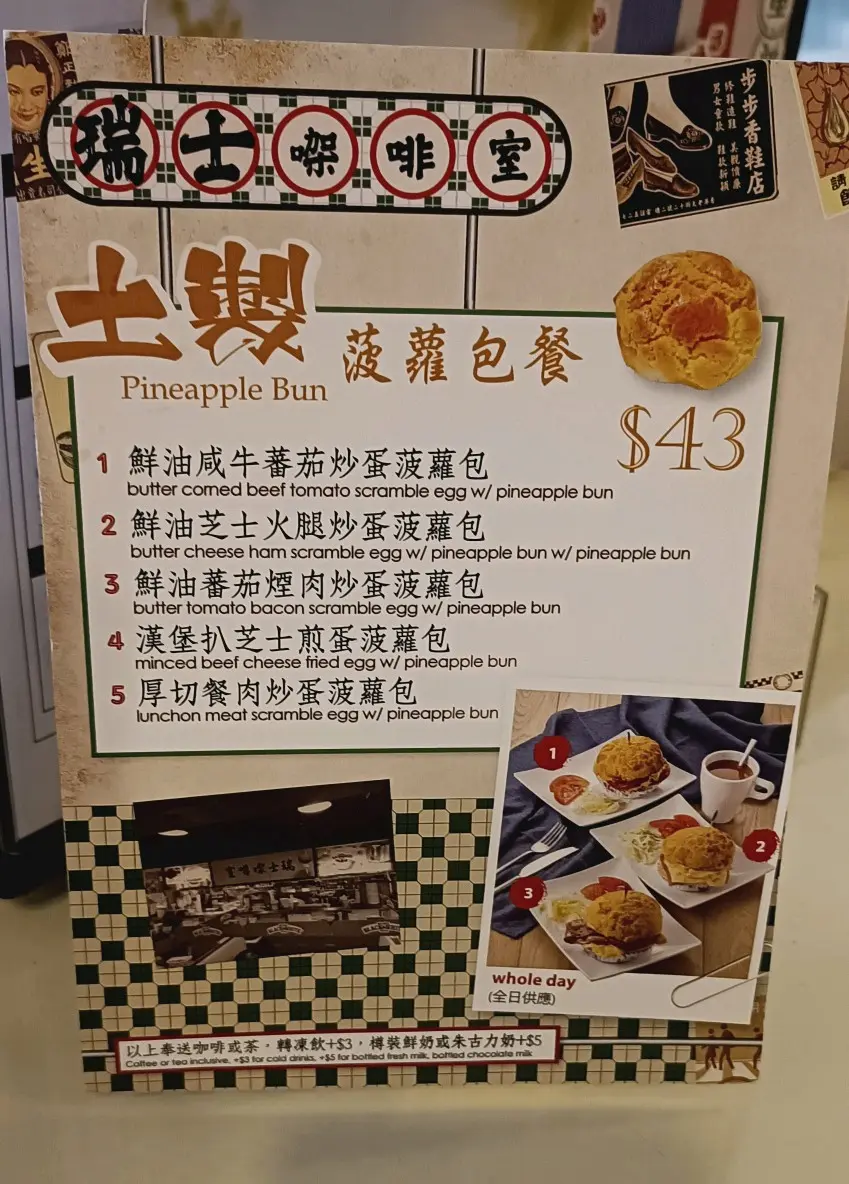 瑞士㗎啡室
步步香鞋店
修鞋造鞋 美觀價廉
男女童款 鞋款新穎
生
請
土製
菠蘿包餐
Pineapple Bun
$43
1 鮮油咸牛蕃茄炒蛋菠蘿包
butter corned beef tomato scramble egg w/ pineapple bun
2 鮮油芝士火腿炒蛋菠蘿包
butter cheese ham scramble egg w/ pineapple bun w/ pineapple bun
3 鮮油蕃茄煙肉炒蛋菠蘿包
butter tomato bacon scramble egg w/ pineapple bun
4 漢堡扒芝士煎蛋菠蘿包
minced beef cheese fried egg w/ pineapple bun
5 厚切餐肉炒蛋菠蘿包
lunchon meat scramble egg w/ pineapple bun
1
2
3
室啡㗎士瑞
whole day
(全日供應)
以上奉送咖啡或茶，轉凍飲+$3，樽裝鮮奶或朱古力奶+$5
Coffee or tea inclusive, +$3 for cold drinks, +$5 for bottled fresh milk, bottled chocolate milk